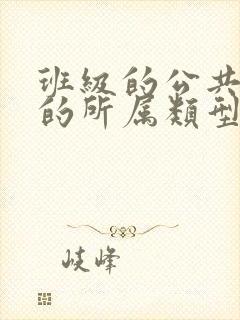 班級的公共
的所属類型
岐峰